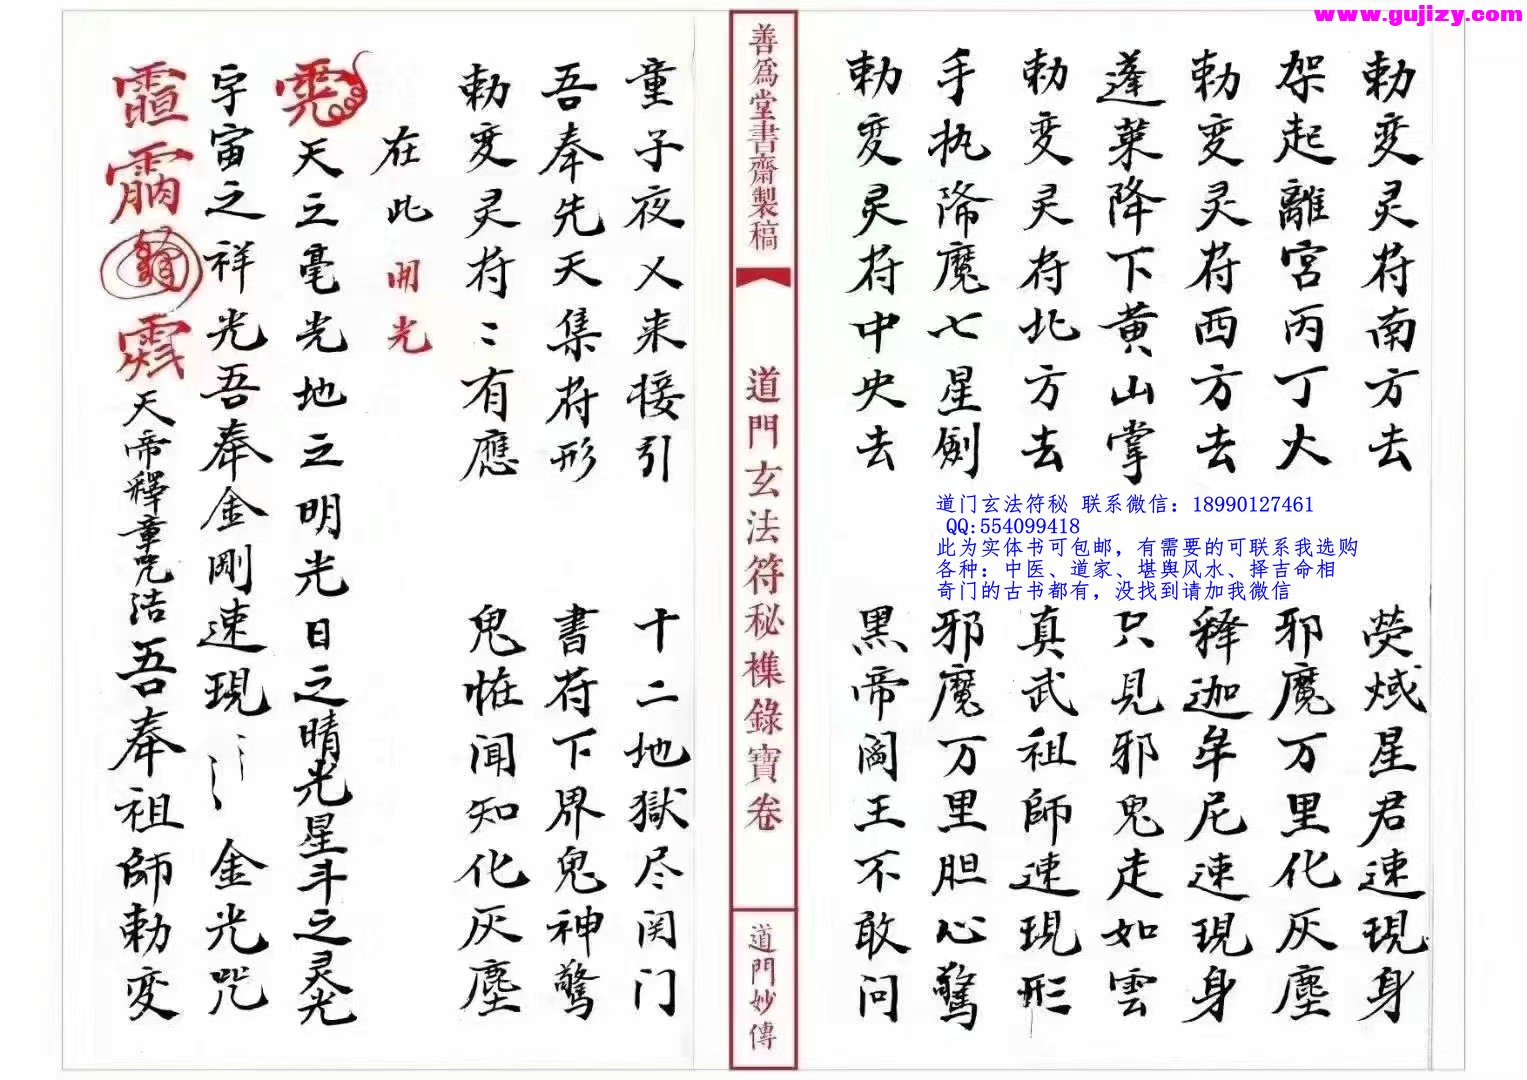 www.gujizy.com
勅变灵符南方去 荧惑星君速現身
架起離宮丙丁火 邪魔万里化灰塵
勅变灵符西方去 释迦牟尼速現身
蓬莱降下黄山掌 只見邪鬼走如雲
勅变灵符北方去 真武祖師速現形
手执降魔七星劍 邪魔万里胆心驚
勅变灵符中央去 黑帝阎王不敢问
道门玄法符秘 联系微信：18990127461
QQ:554099418
此为实体书可包邮，有需要的可联系我选购
各种：中医、道家、堪舆风水、择吉命相
奇门的古书都有，没找到请加我微信
善為堂書齋製稿
道門玄法符秘雧錄寶卷
道門妙傳
童子夜叉来接引 十二地獄尽関门
吾奉先天集符形 書符下界鬼神驚
勅变灵符〻有應 鬼怪闻知化灰塵
在此 開光
天之毫光地之明光日之晴光星斗之灵光
宇宙之祥光吾奉金剛速現〻〻金光咒
天帝釋章咒洁吾奉祖師勅变